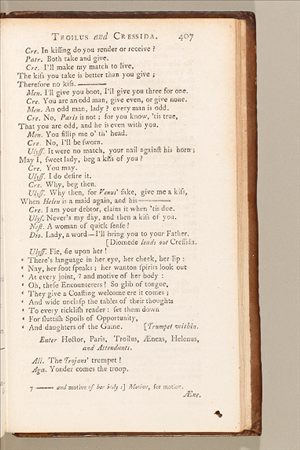 TROILUS and CRESSIDA. 407
Cre. In kissing do you render or receive?
Patr. Both take and give.
Cre. I'll make my match to live,
The kiss you take is better than you give;
Therefore no kiss.
Men. I'll give you boot, I'll give you three for one.
Cre. You are an odd man, give even, or give none.
Men. An odd man, lady? every man is odd.
Cre. No, Paris is not: for you know, 'tis true,
That you are odd, and he is even with you.
Men. You fillip me o' th' head.
Cre. No, I'll be sworn.
Ulyss. It were no match, your nail against his horn;
May I, sweet lady, beg a kiss of you?
Cre. You may.
Ulyss. I do desire it.
Cre. Why, beg then.
Ulyss. Why then, for Venus' sake, give me a kiss,
When Helen is a maid again, and his———
Cre. I am your debtor, claim it when 'tis due.
Ulyss. Never's my day, and then a kiss of you.
Nest. A woman of quick sense!
Dio. Lady, a word—I'll bring you to your Father.
[Diomede leads out Cressida.
Ulyss. Fie, fie upon her!
‘ There's language in her eye, her cheek, her lip:
‘ Nay, her foot speaks; her wanton spirits look out
‘ At every joint, 7 and motive of her body:
‘ Oh, these Encounterers! so glib of tongue,
‘ They give a Coasting welcome ere it comes;
‘ And wide unclasp the tables of their thoughts
‘ To every ticklish reader: set them down
‘ For sluttish Spoils of Opportunity,
‘ And daughters of the Game. [Trumpet within.
Enter Hector, Paris, Troilus, Æneas, Helenus,
and Attendants.
All. The Trojans' trumpet!
Aga. Yonder comes the troop.
7 —— and motive of her body:] Motive, for motion.
Æne.